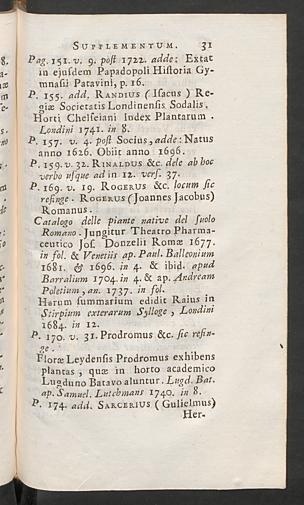 SUPPLEMENTUM. 31
Pag. 151. v. 9. post 1722. adde: Extat
in ejusdem Papadopoli Historia Gy-
mnasii Patavini, p. 16.
P. 155. add. RANDIUS (Isacus) Re-
giæ Societatis Londinensis Sodalis.
Horti Chelseiani Index Plantarum.
Londini 1741. in 8.
P. 157. v. 4. post Socius, adde: Natus
anno 1626. Obiit anno 1696.
P. 159. v. 32. RINALDUS &c. dele ab hoc
verbo usque ad in 12. vers. 37.
P. 169. v. 19. ROGERUS &c. locum sic
refinge. ROGERUS (Joannes Jacobus)
Romanus.
Catalogo delle piante native del suolo
Romano. Jungitur Theatro Pharma-
ceutico Jos. Donzelii Romæ 1677.
in fol. & Venetiis ap. Paul. Balleonium
1681. & 1696. in 4. & ibid. apud
Barralium 1704. in 4. & ap. Andream
Poletium, an. 1737. in fol.
Harum summarium edidit Raius in
Stirpium exterarum Sylloge, Londini
1684. in 12.
P. 170. v. 31. Prodromus &c. sic refin-
ge.
Floræ Leydensis Prodromus exhibens
plantas, quæ in horto academico
Lugduno Batavo aluntur. Lugd. Bat.
ap. Samuel. Lutchmans 1740. in 8.
P. 174. add. SARCERIUS (Gulielmus)
Her-